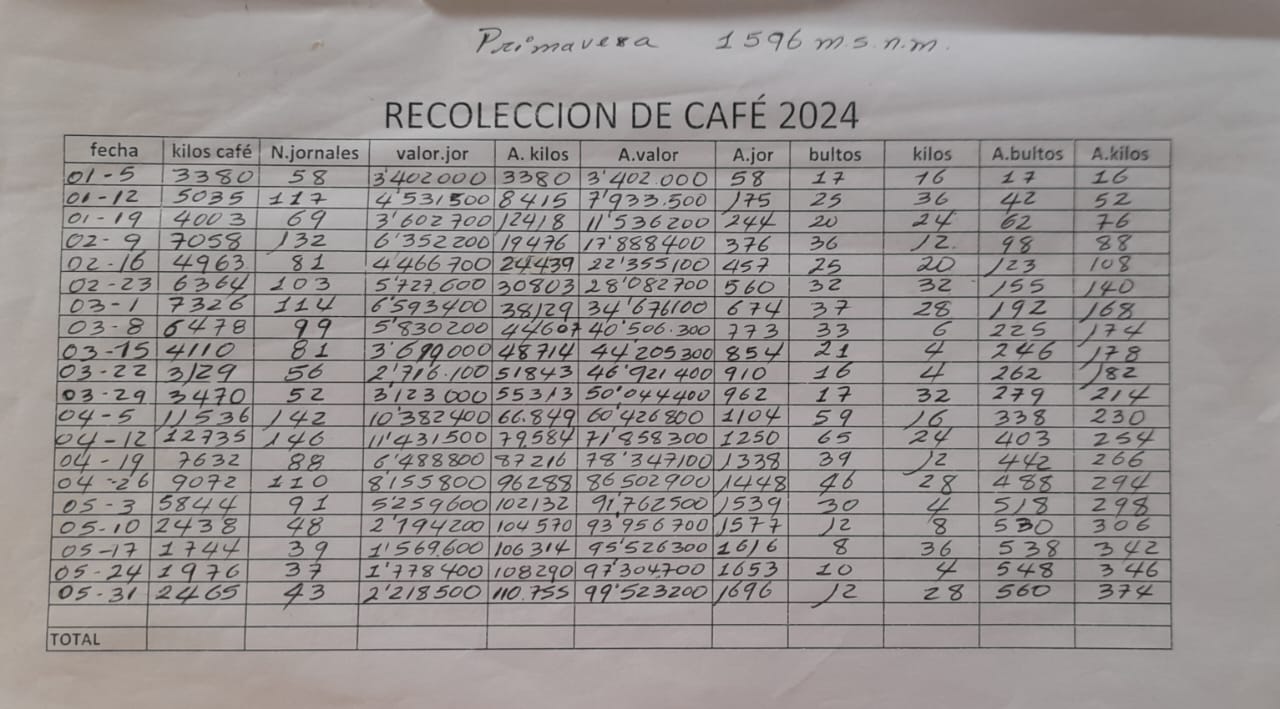 Primavera 1596 m.s.n.m.
RECOLECCION DE CAFÉ 2024
fecha kilos café N.jornales valor.jor A. kilos A.valor A.jor bultos kilos A.bultos A.kilos
01-5 3380 58 3'402000 3380 3'402.000 58 17 16 17 16
01-12 5035 117 4'531500 8415 7'933.500 175 25 36 42 52
01-19 4003 69 3'602700 12418 11'536200 244 20 24 62 76
02-9 7058 132 6'352200 19476 17'888400 376 36 12 98 88
02-16 4963 81 4466700 24439 22'355100 457 25 20 123 108
02-23 6364 103 5'727.600 30803 28'082700 560 32 32 155 140
03-1 7326 114 6'593400 38129 34'676100 674 37 28 192 168
03-8 6478 99 5'830200 44607 40'506.300 773 33 6 225 174
03-15 4110 81 3'699000 48714 44'205300 854 21 4 246 178
03-22 3129 56 2'716.100 51843 46'921400 910 16 4 262 182
03-29 3470 52 3'123000 55313 50'044400 962 17 32 279 214
04-5 11536 142 10'382400 66.849 60'426800 1104 59 16 338 230
04-12 12735 146 11'431500 79.584 71'858300 1250 65 24 403 254
04-19 7632 88 6'488800 87216 78'347100 1338 39 12 442 266
04-26 9072 110 8'155800 96288 86502900 1448 46 28 488 294
05-3 5844 91 5259600 102132 91'762500 1539 30 4 518 298
05-10 2438 48 2'194200 104570 93'956700 1577 12 8 530 306
05-17 1744 39 1'569600 106314 95'526300 1616 8 36 538 342
05-24 1976 37 1'778400 108290 97'304700 1653 10 4 548 346
05-31 2465 43 2'218500 110.755 99'523200 1696 12 28 560 374
TOTAL